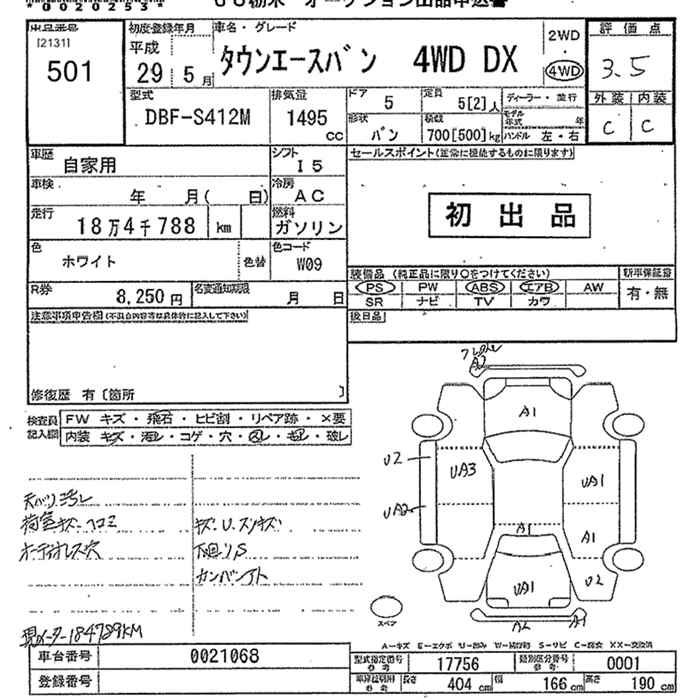 *0020253*
出品番号
[2131]
501
初度登録年月
平成
29年 5月
車名・グレード
タウンエースバン 4WD DX
2WD
4WD
評価点
3.5
外装 内装
C C
型式
DBF-S412M
排気量
1495
CC
ドア
5
定員
5[2]人
形状
バン
積数
700[500]kg
ディーラー・並行
モデル年式 年
ハンドル 左・右
車歴
自家用
シフト
I5
セールスポイント(正常に機能するものに限ります)
初出品
車検
年 月( 日)
冷房
AC
走行
18万4千788 km
燃料
ガソリン
色
ホワイト
色替
色コード
W09
R券
8,250円
名変通知期限
月 日
装備品 (純正品に限り○をつけてください)
PS PW ABS エアB AW
SR ナビ TV カワ
新車保証書
有・無
後日品
注意事項申告欄(不具合内容等は具体的に記入して下さい)
修復歴 有〔箇所 〕
検査員記入欄
FW キズ・飛石・ヒビ割・リペア跡・×要
内装 キズ・汚レ・コゲ・穴・スレ・キレ・破レ
天バリ汚レ
荷室キズ・ヘコミ
オーディオレス穴
キズ・U・スリキズ
下回リS
カンバンアト
現メーター184789KM
A2
A1
U2
UA3
UA1
UA2
A1
A1
UA1
U2
A2
A1
スペア
A-キズ E-エクボ
車台番号
0021068
登録番号
型式指定番号
参考
17756
類別区分番号
参考
0001
参考
長さ 404cm
幅 166cm
高さ 190cm